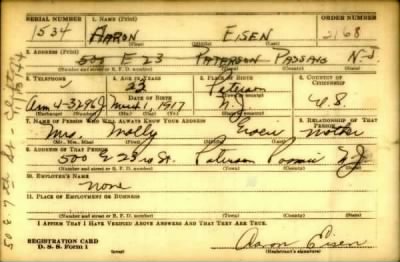 SERIAL NUMBER 1. NAME (Print) ORDER NUMBER
1534 AARON EISEN 2168
(First) (Middle) (Last)
2. ADDRESS (Print)
500 E 23 PATERSON PASSAIC N.J
(Number and street or R. F. D. number) (Town) (County) (State)
3. TELEPHONE 4. AGE IN YEARS 5. PLACE OF BIRTH 6. COUNTRY OF CITIZENSHIP
23 Paterson
DATE OF BIRTH
Arm 4-3296J March 1, 1917 N.J. U.S.
(Exchange) (Number) (Mo.) (Day) (Yr.) (State or country)
7. NAME OF PERSON WHO WILL ALWAYS KNOW YOUR ADDRESS 8. RELATIONSHIP OF THAT PERSON
Mrs. Molly Eisen Mother
(Mr., Mrs., Miss) (First) (Middle) (Last)
9. ADDRESS OF THAT PERSON
500 E 23rd St. Paterson Passaic N.J
(Number and street or R. F. D. number) (Town) (County) (State)
10. EMPLOYER'S NAME
None
11. PLACE OF EMPLOYMENT OR BUSINESS
(Number and street or R. F. D. number) (Town) (County) (State)
I AFFIRM THAT I HAVE VERIFIED ABOVE ANSWERS AND THAT THEY ARE TRUE.
REGISTRATION CARD
D. S. S. Form 1 (over) Aaron Eisen
(Registrant's signature)